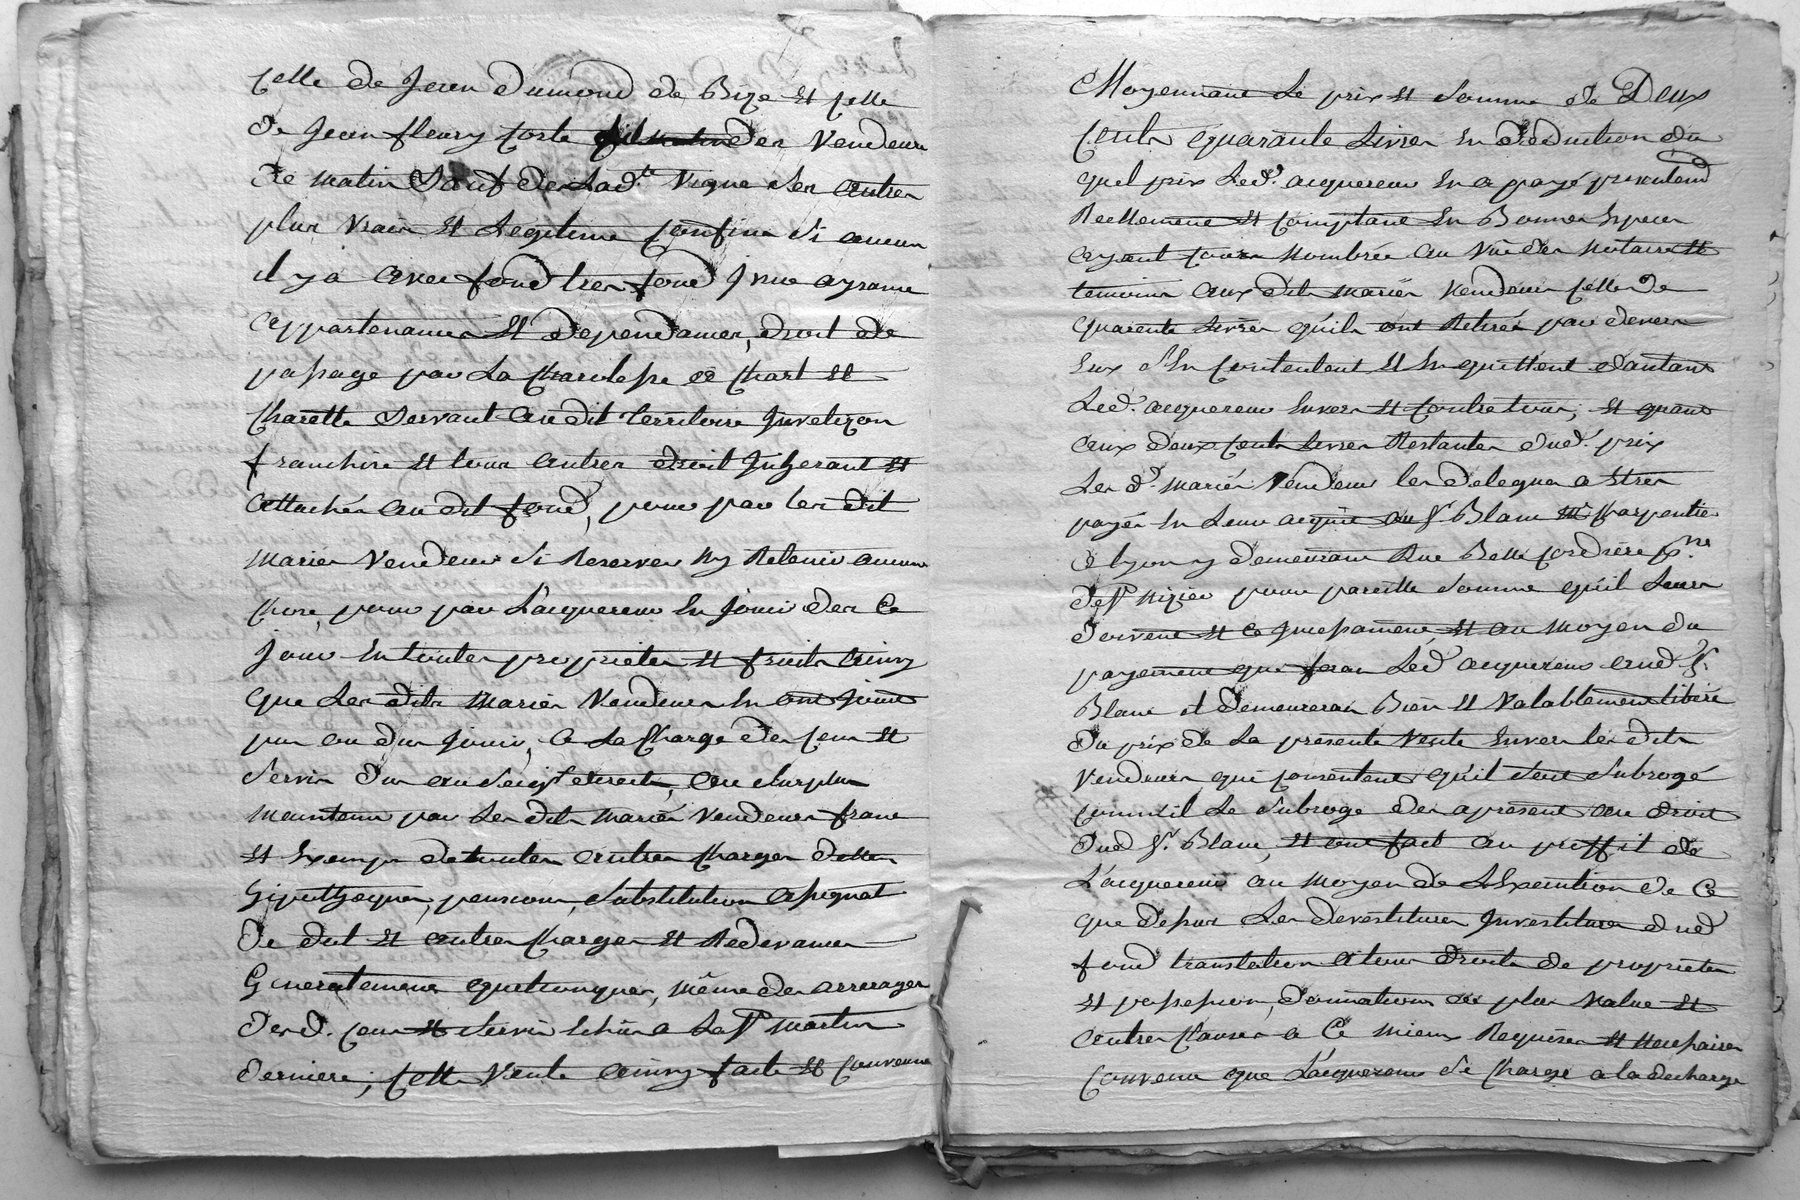 Celle de Jean dumond de Bize et celle
de Jean fleury Coste des Vendeurs
de matin Sauf de Lad.te Vigne Ses autres
plus Vrais et Legitimes Confins Si aucun
il y a avec fond tres fond Jssue aysance
appartenances et dependances, droit de
passage par La Charolesse a Chart et
Charette Servant audit territoire
franchise et tous autres droit Jnherant et
attachés au dit fond, pour par les dit
mariés Vendeurs Si Reserver ny Retenir aucune
Chose, pour par L'acquereur En Jouir des Ce
Jour En toutes proprietes et fruits ainsy
que Les dits mariés Vendeurs En ont Jouis
pu ou du Jouir, a La Charge des Cens et
Servis du au Seig.r directs, au Surplus
maintenu par Les dits mariés Vendeurs franc
et Exempt de toutes autres Charges dettes
Hipotheques, pensions, Substitution assignat
de dot et autres Charges et Redevances
Generalement quelconques, même des arrerages
desd. Cens et Servis Echus a La S.t martin
derniere; Cette Vente ainsy faite et Convenue
Moyennant Le prix et Somme de Deux
Cents quarante Livres En deduction du
quel prix Led.t acquereur En a payé presentem.t
Reellement et Comptant En Bonnes Especes
ayant Cours Nombrée au Vû des Notaire et
temoins aux dits mariés Vendeurs Celle de
quarente Livres qu'ils ont Retirée par devers
Eux S'En Contentent et En quittent d'autant
Led.t acquereur Envers et Contre tous; et quant
aux deux Cents Livres Restantes dud.t prix
Les d.t mariés Vendeurs les deleguer a Etres
payés En Leur acquit au S.r Blanc M.e Charpentier
a lyon y demeurant Rue Belle Cordiere p.sse
de S.t Nizier pour pareille Somme qu'il Leurs
doivent et Ce Jncessament et au moyen du
payement que feras Led.t acquereur aud.t S.r
Blanc il demeureras Bien et Valablement libéré
du prix de La presente Vente Envers les dits
Vendeurs qui Consentent qu'il Soit Subrogé
Comme il Le Subroge des apresent au droit
dud.t S.r Blanc, et ont fait au proffit de
L'acquereur au moyen de L'Execution de Ce
que dessus Les devestitures Jnvestitures dud.t
fond translation et tous droits de proprietes
et possession, donnation de plus Value et
autres Clauses a Ce mieux Requises et Necessaires
Convenu que L'acquereur Se Charge a la decharge